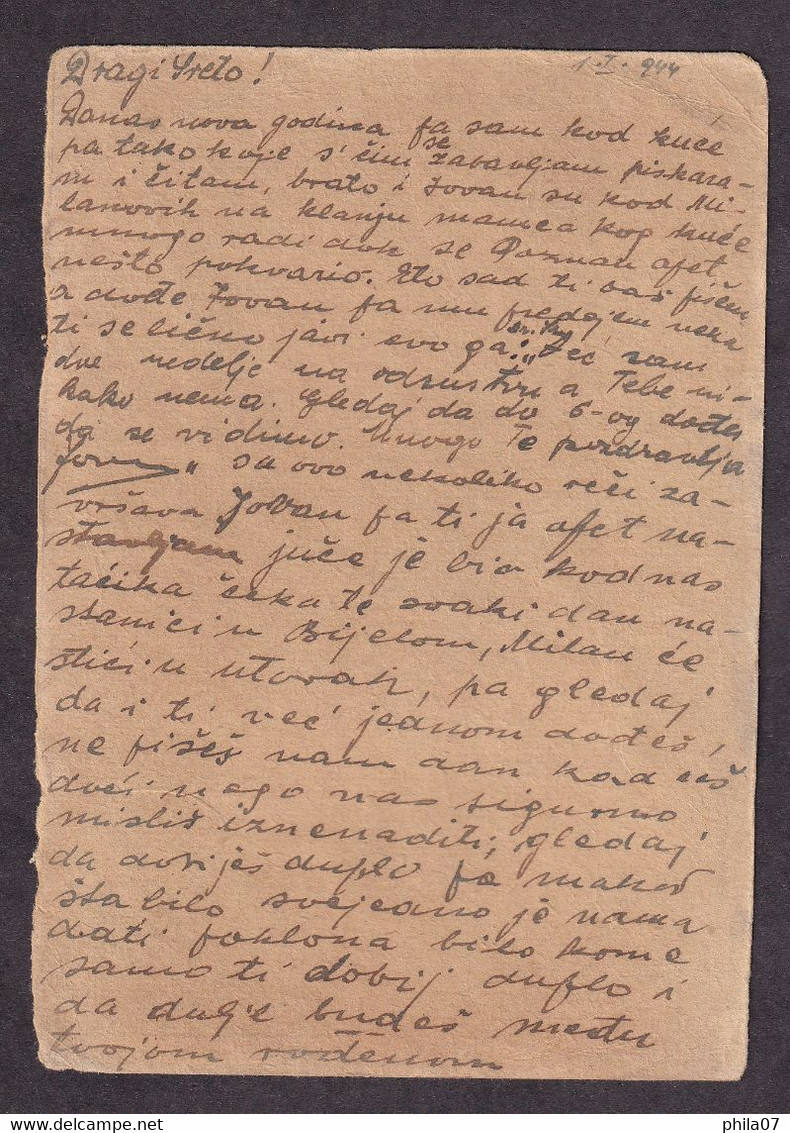 Dragi Sreto! 1·I·944
Danas nova godina ja sam kod kuće
pa tako koje s' čim se zabavljam piskara-
m i čitam, brato i Jovan su kod Mi-
lanovih na klanju mamca kog kuće
mnogo radi dok se opet
nešto pokvario. Eto sad ti baš pišem
a dođe Jovan pa mu predajem neka
ti se lično javi evo ga: „Već sam
dve nedelje na odsustvu a Tebe ni-
kako nema. Gledaj da do 6-og dođeš
da se vidimo. Mnogo Te pozdravlja
Jovan" sa ovo nekoliko reči za-
vršava Jovan pa ti ja opet na-
stavljam juče je bio kod nas
čeka te svaki dan na
stanici u Bijelom, Milan će
stići u utorak, pa gledaj
da i ti već jednom dođeš,
ne pišeš nam dan kad ćeš
doći nego nas sigurno
misliš iznenaditi; gledaj
da dobiješ duplo pa makar
šta bilo svejedno je nama
dati poklona bilo kome
samo ti dobij duplo i
da dulje budeš među
tvojom rođenom
delcampe.net
phila07